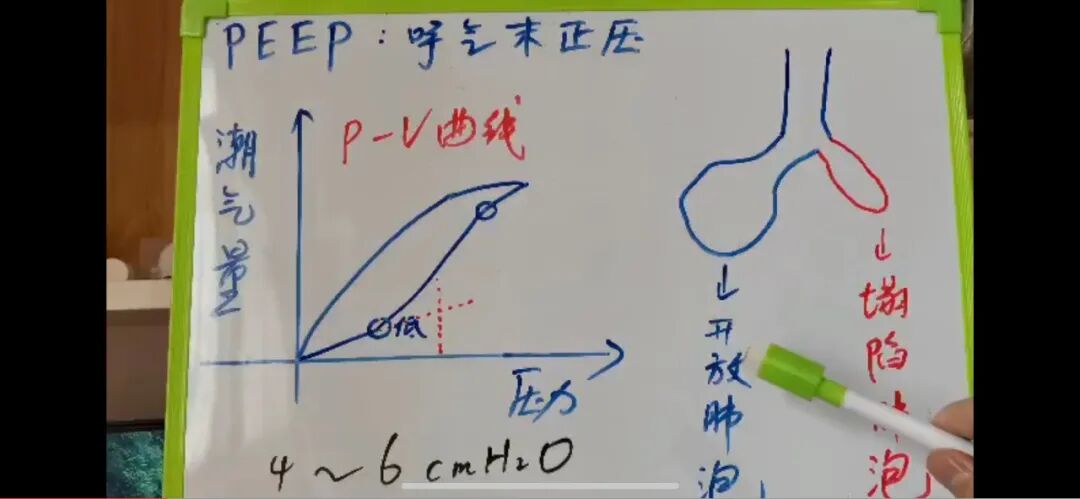 PEEP:呼气末正压
P-V曲线
潮气量
低
压力
4~6cmH₂O
开放肺泡
塌陷肺泡